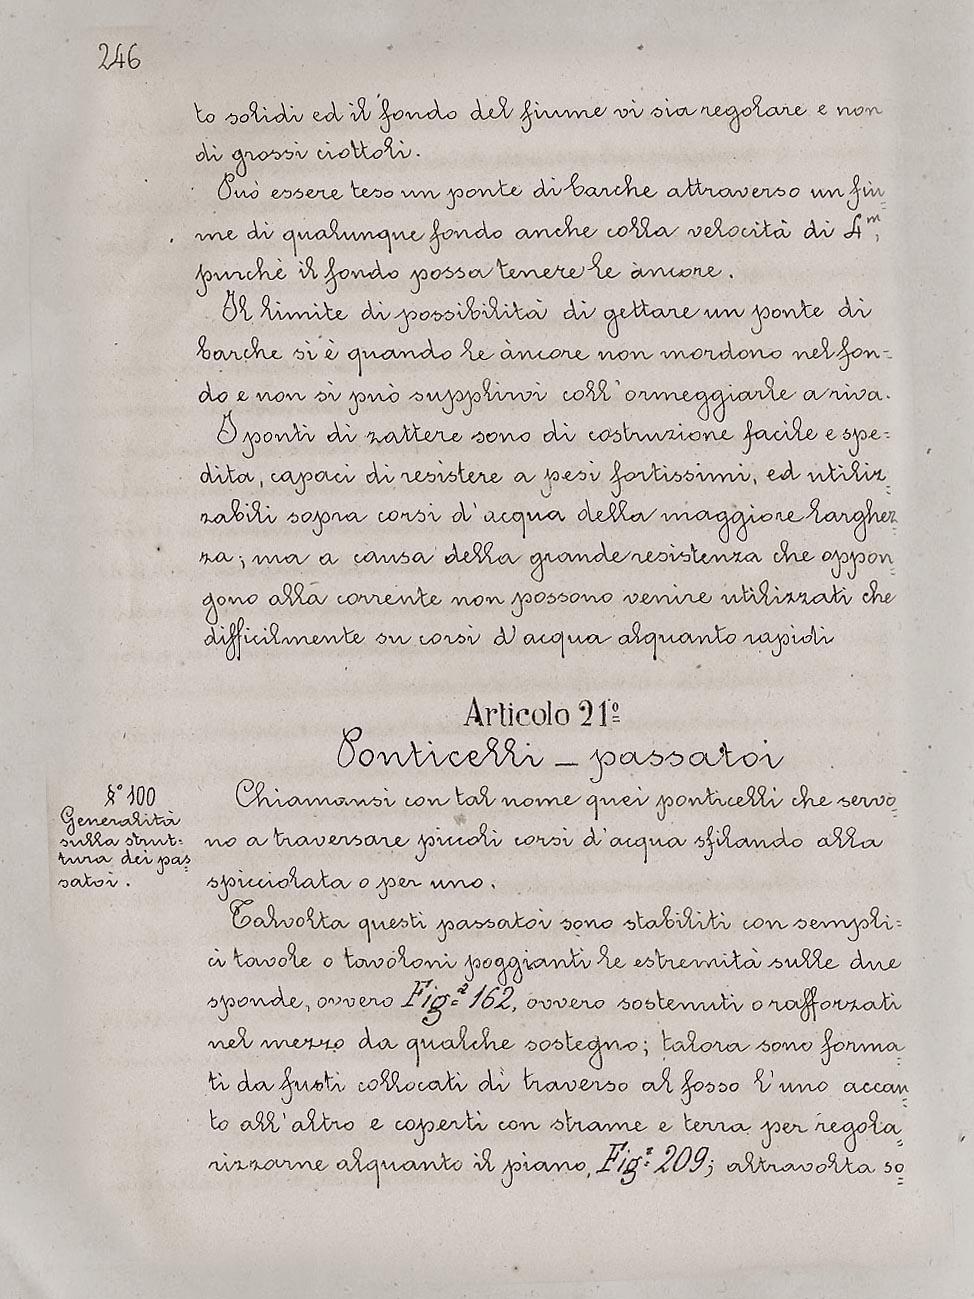 246
to solidi ed il fondo del fiume vi sia regolare e non
di grossi ciottoli.
Può essere teso un ponte di barche attraverso un fiu=
me di qualunque fondo anche colla velocità di 4m,
purchè il fondo possa tenere le àncore.
Il limite di possibilità di gettare un ponte di
barche si è quando le àncore non mordono nel fon=
do e non si può supplirvi coll'ormeggiarle a riva.
I ponti di zattere sono di costruzione facile e spe=
dita, capaci di resistere a pesi fortissimi, ed utiliz=
zabili sopra corsi d'acqua della maggiore larghez=
za; ma a causa della grande resistenza che oppon=
gono alla corrente non possono venire utilizzati che
difficilmente su corsi d'acqua alquanto rapidi
Articolo 21º
Ponticelli _ passatoi
§º 100
Generalità
sulla strut=
tura dei pas=
satoi.
Chiamansi con tal nome quei ponticelli che servo=
no a traversare piccoli corsi d'acqua sfilando alla
spicciolata o per uno.
Talvolta questi passatoi sono stabiliti con sempli=
ci tavole o tavoloni poggianti le estremità sulle due
sponde, ovvero Fig.ª 162, ovvero sostenuti o rafforzati
nel mezzo da qualche sostegno; talora sono forma=
ti da fusti collocati di traverso al fosso l'uno accan=
to all'altro e coperti con strame e terra per regola=
rizzarne alquanto il piano, Fig.ª 209; altravolta so=